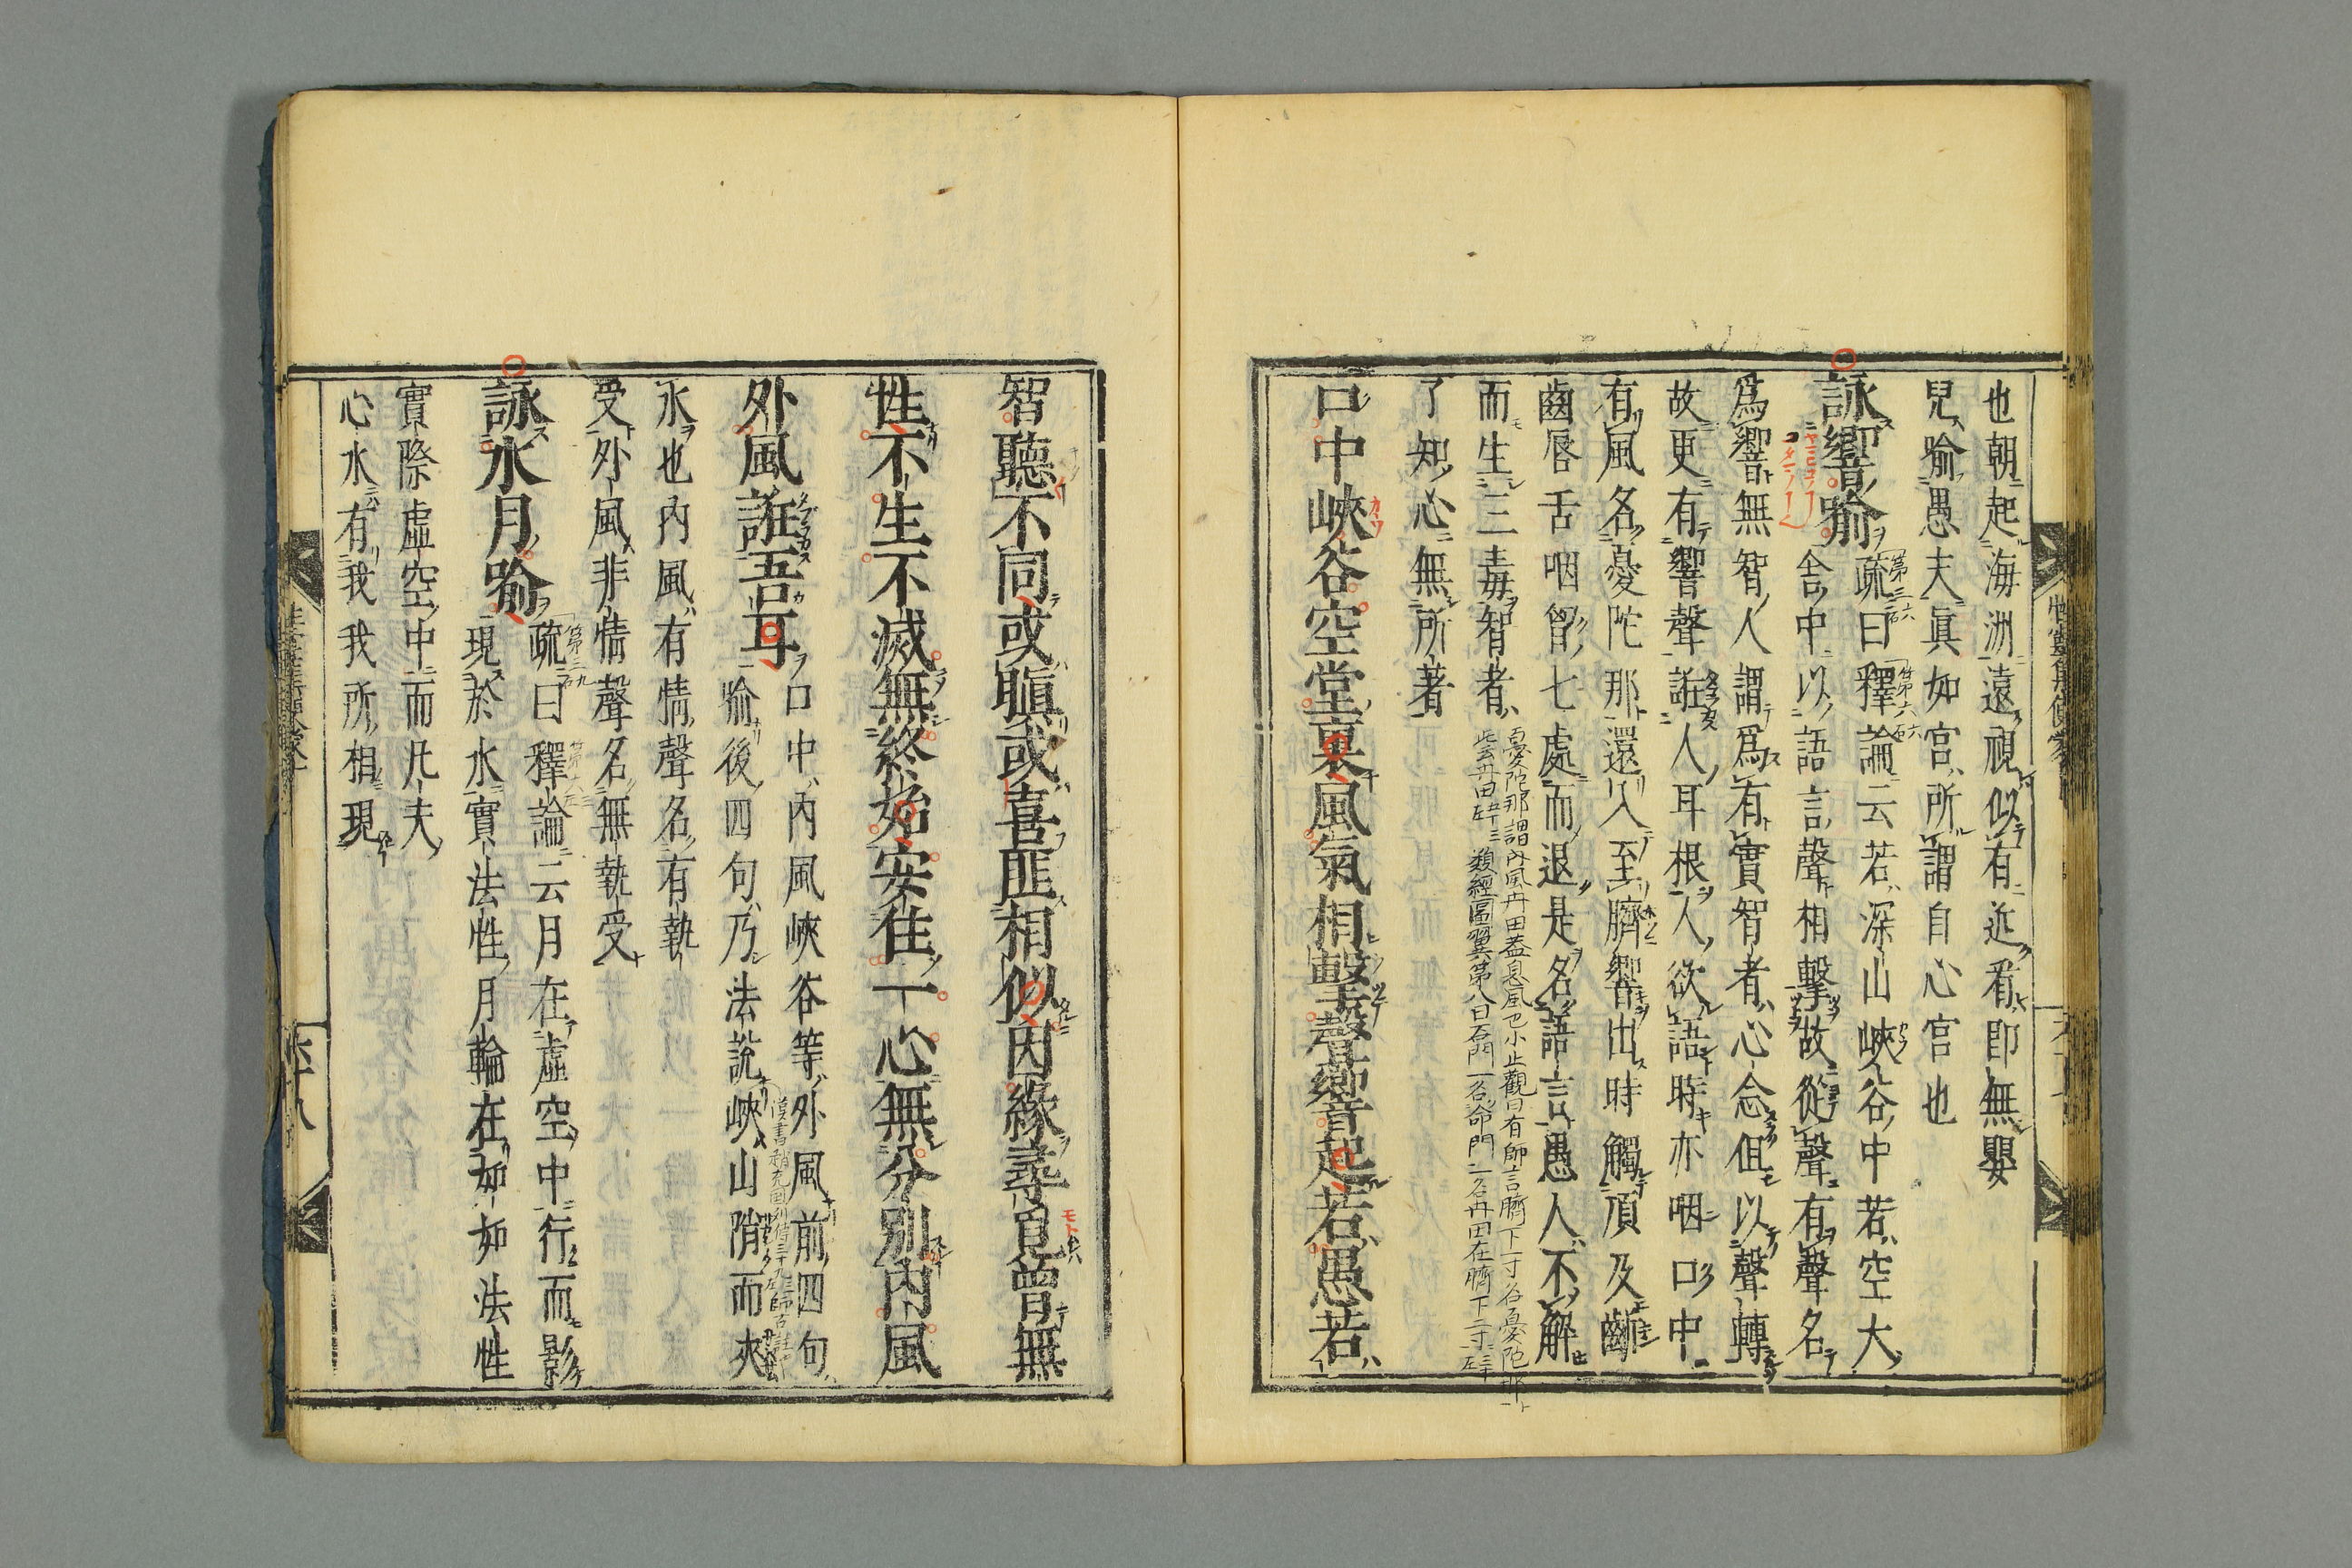 也朝起海洲遠視似有近看卽無嬰
兒喻愚夫眞如宮所謂自心宮也
詠響喻
疏曰釋論云若深山峽谷中若空大
舍中以語言聲相擊故從聲有聲名
爲響無智人謂爲有實智者心念佀以聲轉
故更有響聲誑人耳根人欲語時亦咽口中
有風名憂陀那還入至臍響出時觸頂及齗
齒唇舌咽胷七處而退是名語言愚人不解
而生三毒智者
憂陀那謂內風丹田葢息風也小止觀曰有師言臍下一寸名憂陀那
此云丹田
類經圖翼第八曰石門一名命門一名丹田在臍下二寸
了知心無所著
口中峽谷空堂裏風氣相擊聲響起若愚若
智聽不同或瞋或喜匪相似因緣尋覓曾無
性不生不滅無終始安住一心無分別內風
外風誑吾耳
口中內風峽谷等外風前四句
喻後四句乃法說峽山陗而夾
水也內風有情聲名有執
受外風非情聲名無執受
詠水月喻
疏曰釋論云月在虛空中行而影
現於水實法性月輪在如如法性
實際虛空中而凡夫
心水有我我所相現